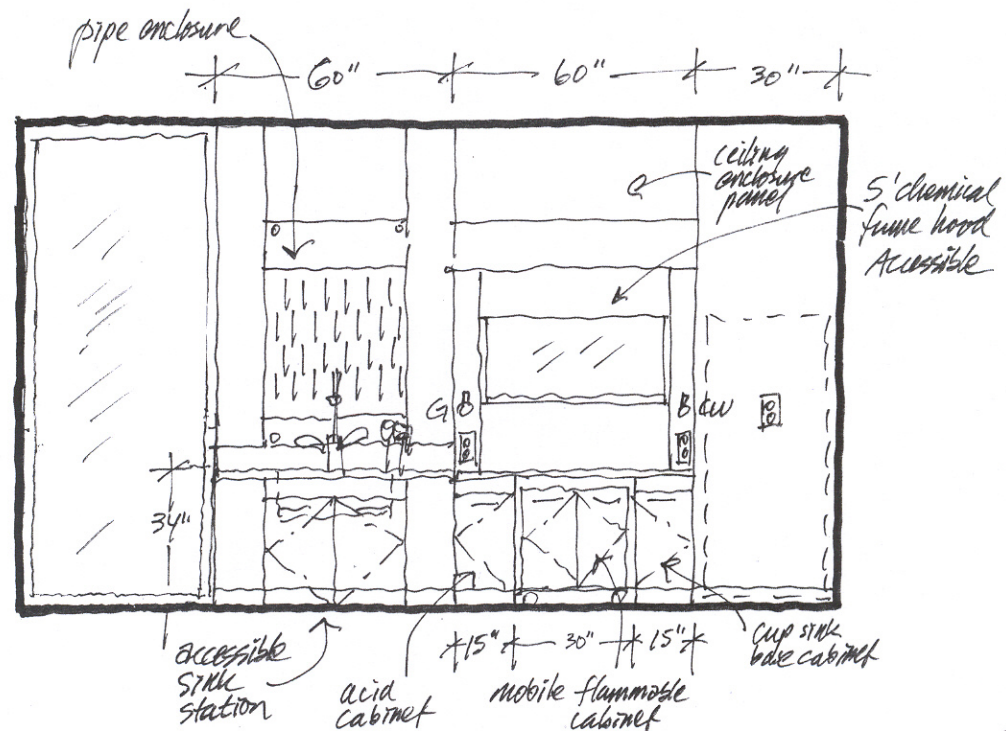 pipe enclosure
60"
60"
30"
ceiling
enclosure
panel
5' chemical
fume hood
Accessible
G
CW
34"
15"
30"
15"
accessible
sink
station
acid
cabinet
mobile flammable
cabinet
cup sink
base cabinet